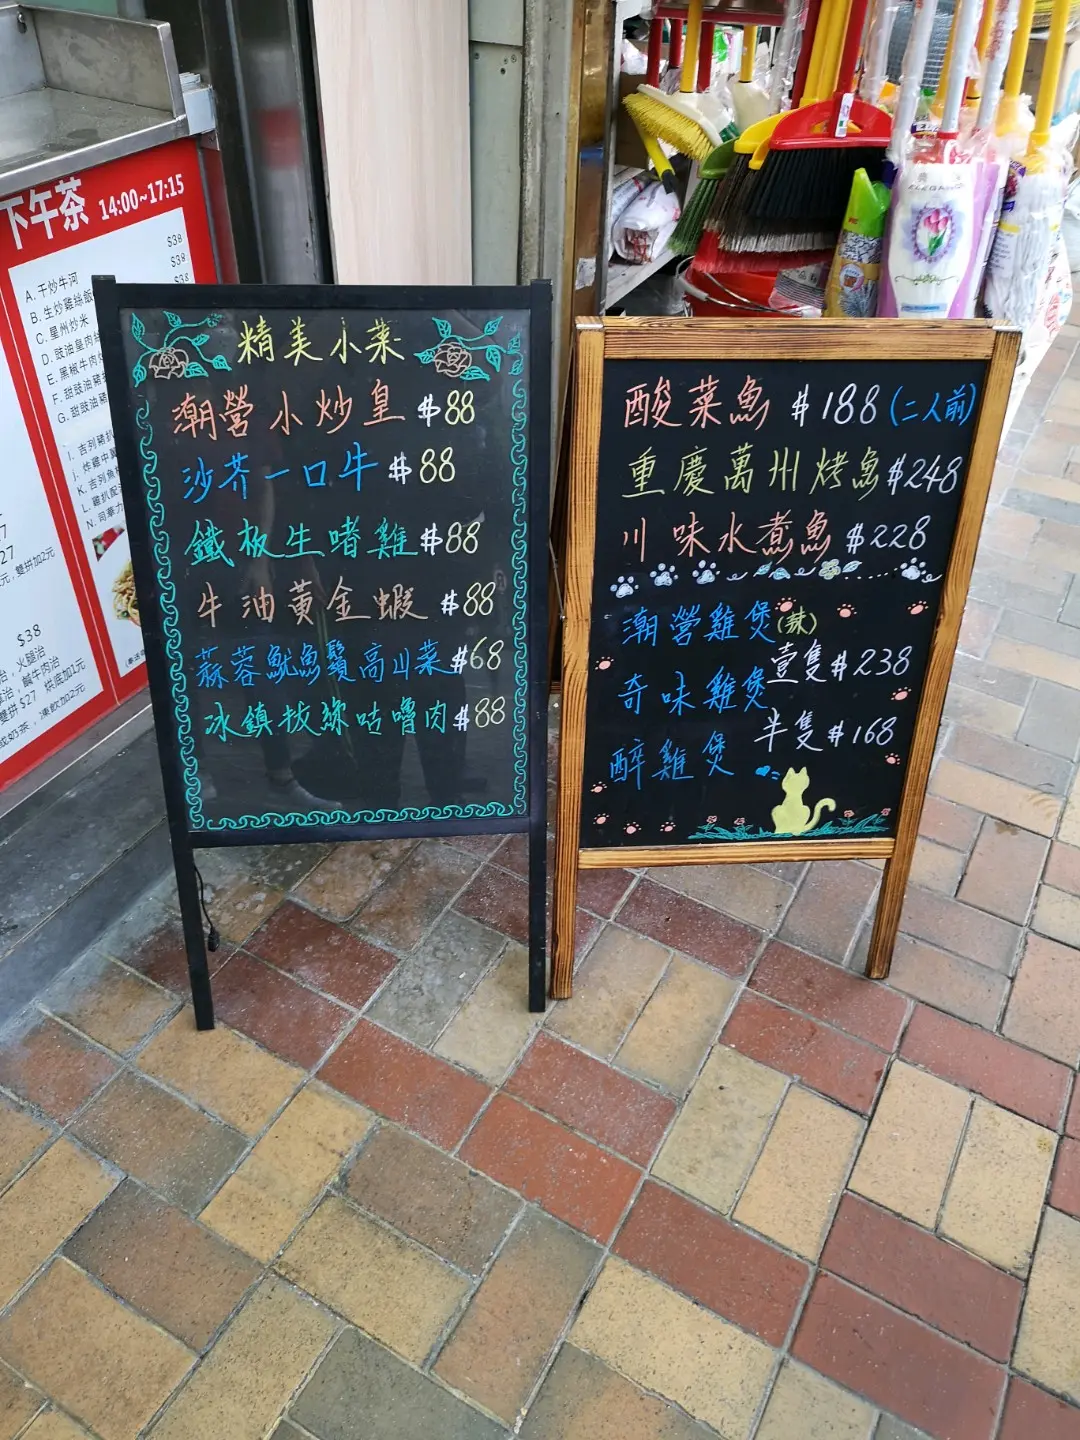 下午茶 14:00~17:15
$38
A. 干炒牛河 $38
B. 生炒雞絲飯 $38
C. 星州炒米
D. 豉油皇肉絲
E. 黑椒牛肉
F. 甜豉油豬
G. 甜豉油豬
I. 吉列豬
J. 炸雞中
K. 吉列魚
L. 雞扒配
N. 同華力
$38
火腿治
鹹牛肉治
雙拼 $27 烘底加1元
奶茶，凍飲加2元
精美小菜
潮營小炒皇 $88
沙芥一口牛 $88
鐵板生啫雞 $88
牛油黃金蝦 $88
蒜蓉魷魚鬚高川菜 $68
冰鎮菝蘿咕嚕肉 $88
酸菜魚 $188 (二人前)
重慶萬州烤魚 $248
川味水煮魚 $228
潮營雞煲(辣)
壹隻 $238
奇味雞煲
半隻 $168
醉雞煲